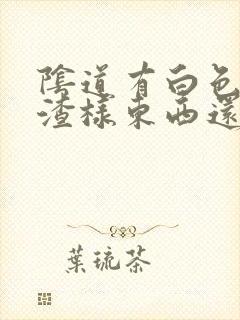 陰道有白色
渣樣東西還
葉琉茶